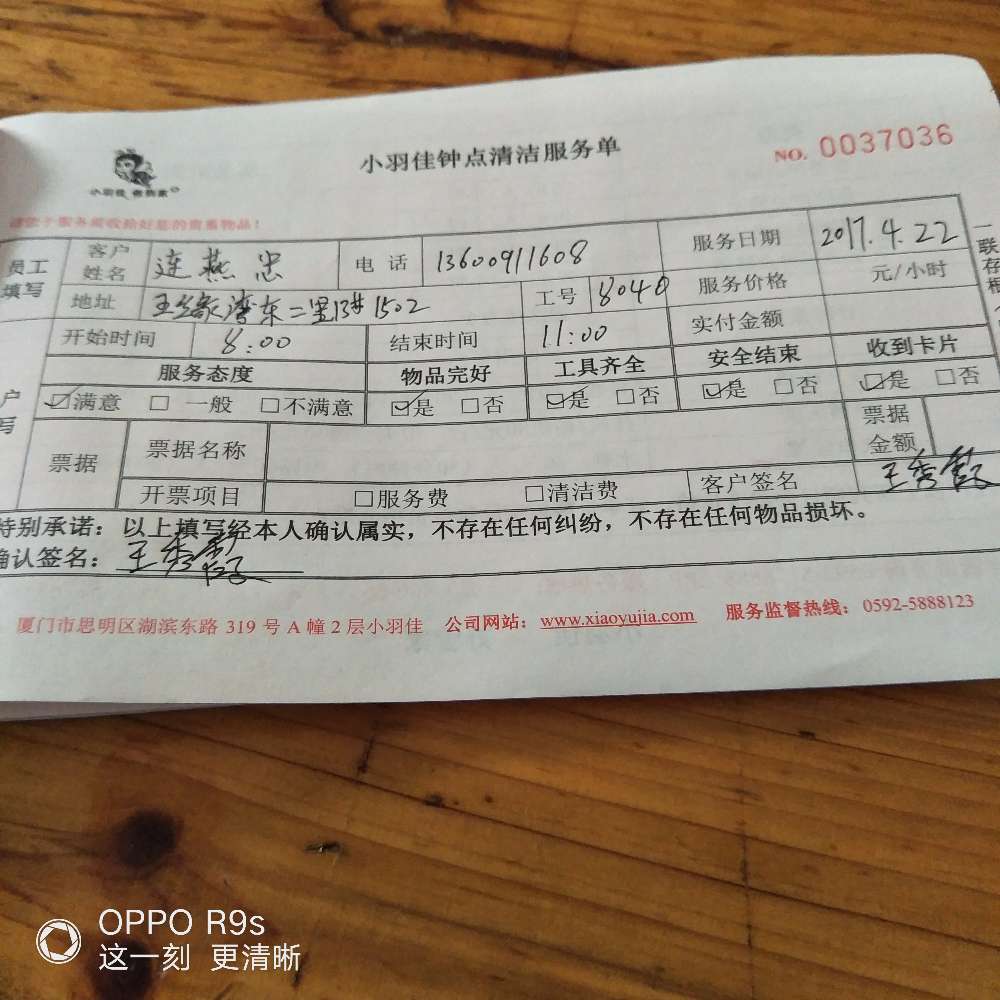 小羽佳钟点清洁服务单
NO. 0037036
小羽佳
请您于服务前收拾好您的贵重物品！
员工填写 客户姓名 连燕忠 电话 13600911608 服务日期 2017.4.22
地址 湾东二里13# 1502 工号 8040 服务价格 元/小时
开始时间 8:00 结束时间 11:00 实付金额
服务态度 物品完好 工具齐全 安全结束 收到卡片
☑满意 □一般 □不满意 ☑是 □否 ☑是 □否 ☑是 □否 ☑是 □否
户
写
票据 票据名称 票据金额
开票项目 □服务费 □清洁费 客户签名 王秀
特别承诺：以上填写经本人确认属实，不存在任何纠纷，不存在任何物品损坏。
确认签名：王秀
厦门市思明区湖滨东路 319 号 A 幢 2 层小羽佳 公司网站：www.xiaoyujia.com 服务监督热线：0592-5888123
一联存根
OPPO R9s
这一刻 更清晰